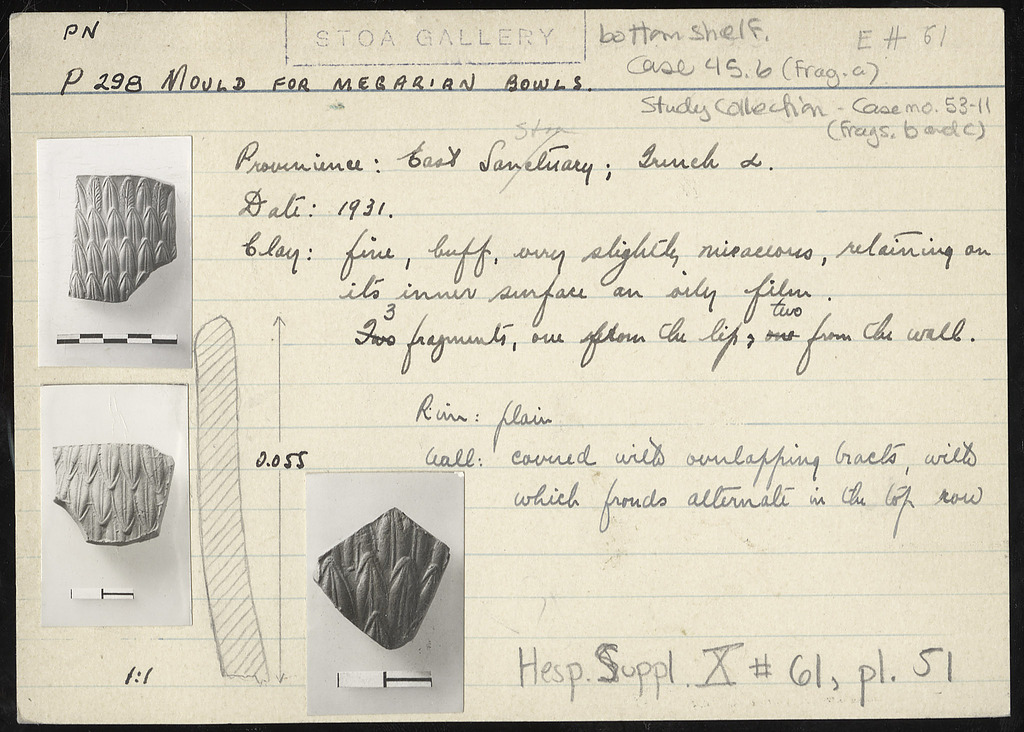 PN
STOA GALLERY
bottom shelf.
E # 61
Case 45.6 (frag. a)
P 298 MOULD FOR MEGARIAN BOWLS.
Study Collection - Case no. 53-11
(frags. b and c)
Stoa
Provenience: East Sanctuary; Trench α.
Date: 1931.
Clay: fine, buff, very slightly micaceous, retaining on
its inner surface an oily film.
3 two
Two fragments, one from the lip, one from the wall.
Rim: plain
0.055
Wall: covered with overlapping bracts, with
which fronds alternate in the top row
1:1
Hesp. Suppl. X # 61, pl. 51